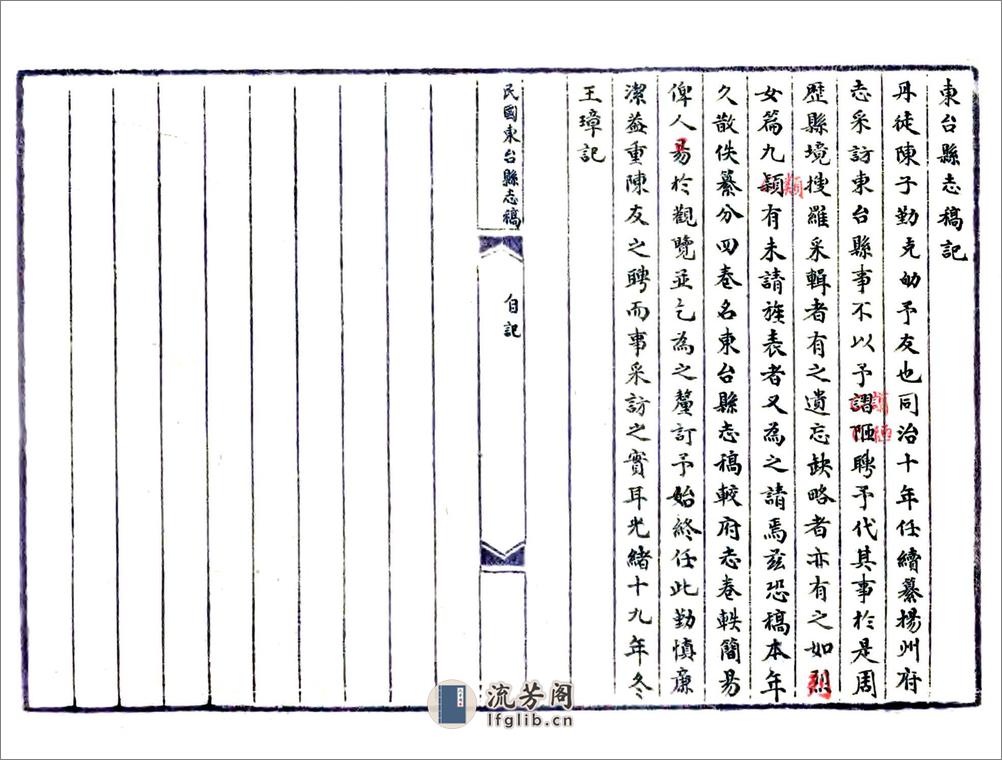 東台縣志稿記
丹徒陳子勤克劬予友也同治十年任續纂揚州府
志采訪東台縣事不以予謭陋聘予代其事於是周
歷縣境搜羅采輯者有之遺忘缺略者亦有之如烈
女篇九穎有未請旌表者又為之請焉茲恐稿本年
久散佚纂分四卷名東台縣志稿較府志卷軼簡易
俾人易於觀覽並乞為之釐訂予始終任此勤慎廉
潔益重陳友之聘而事采訪之實耳光緒十九年冬
王璋記
民國東台縣志稿
自記
類
易
謭
陋
列
流芳阁
lfglib.cn